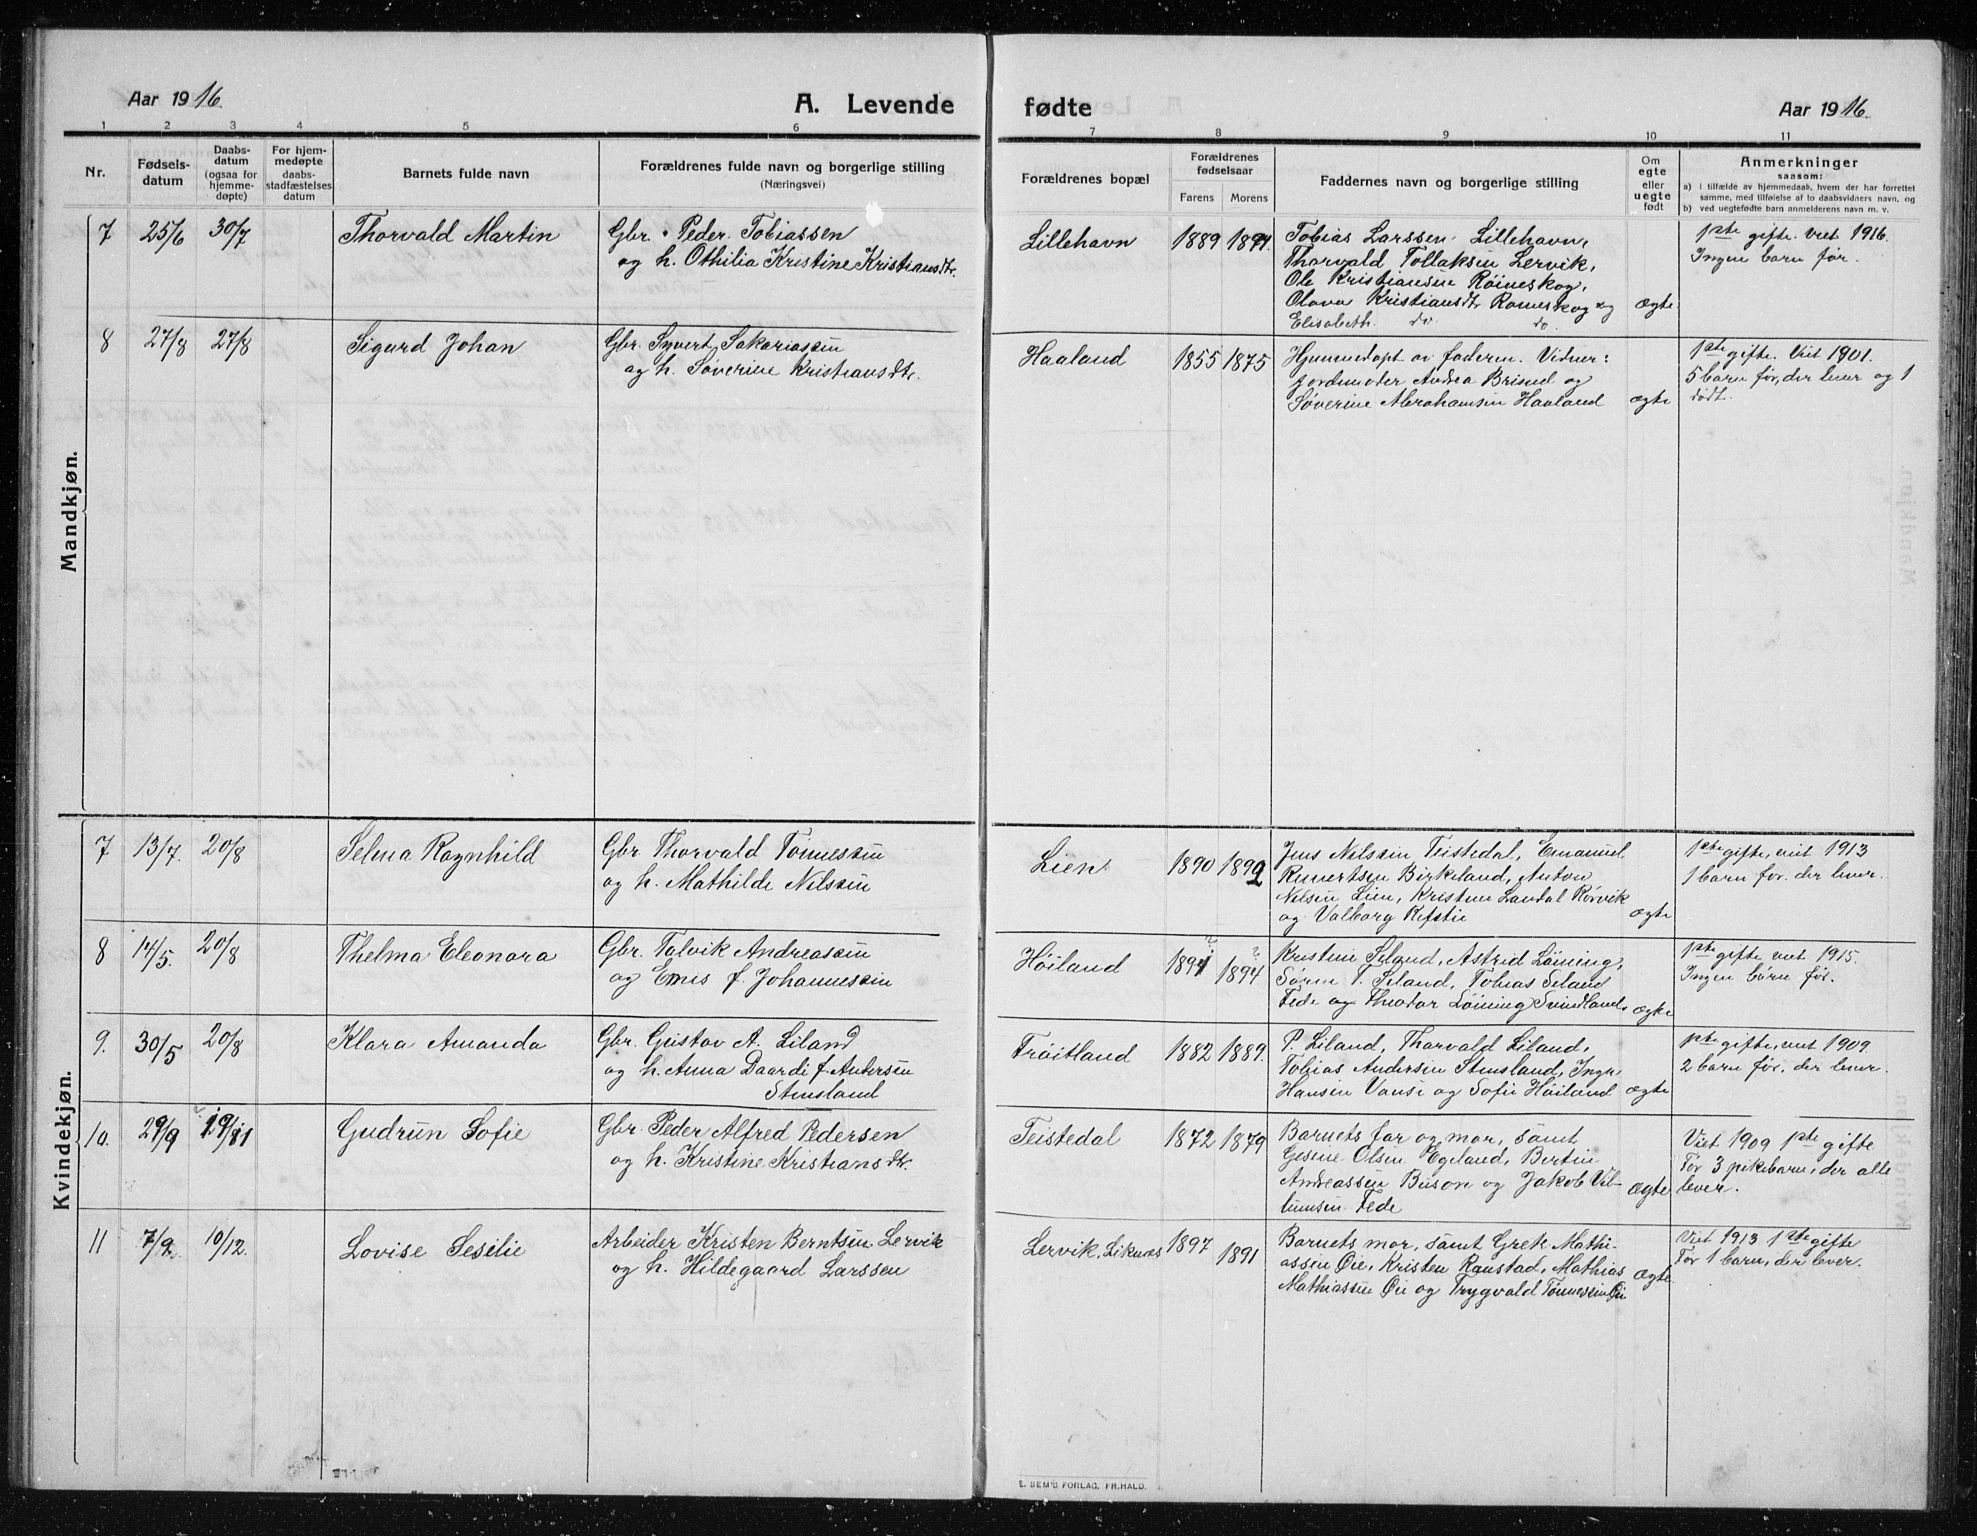 Aar 1916.
A. Levende
fødte
Aar 1916.
1 2 3 4 5 6 7 8 9 10 11
Nr.
Fødselsdatum
Daabsdatum (ogsaa for hjemmedøpte)
For hjemmedøpte daabsstadfæstelses datum
Barnets fulde navn
Forældrenes fulde navn og borgerlige stilling
(Næringsvei)
Forældrenes bopæl
Forældrenes fødselsaar
Farens Morens
Faddernes navn og borgerlige stilling
Om egte eller uegte født
Anmerkninger
saasom:
a) i tilfælde av hjemmedaab, hvem der har forrettet
samme, med tilføielse af to daabsvidners navn, og
b) ved uegtefødte barn anmelderens navn m. v.
Mandkjøn.
7 25/6 30/7 Thorvald Martin
Gbr. Peder Tobiassen
og h. Othilia Kristine Kristiansdtr.
Lillehavn 1889
Tobias Larssen Lillehavn,
Thorvald Tollaksen Lervik,
Ole Kristiansen Röineskog,
Olava Kristiansdtr. Romeskog og
Elisabeth do do
ægte
1ste gifte. viet 1916.
Ingen barn før.
8 27/8 27/8 Sigurd Johan
Gbr. Syvert Sakariassen
og h. Søverine Kristiansdtr.
Haaland 1855 1875
Hjemmedøpt av faderen. Vidner:
jordmoder Andrea Brised og
Søverine Abrahamsen Haaland
ægte
1ste gifte. Viet 1901.
5 barn før, der lever og 1
dødt.
Kvindekjøn.
7 13/7. 20/8 Selma Ragnhild
Gbr Thorvald Tønnessen
og h. Mathilde Nilssen
Lien 1890 1892
Jens Nilssen Teistedal, Emanuel
Reinertsen Birkeland, Anton
Nilsen Lien, Kristine Landal Rørvik
og Valborg Refstie
ægte
1ste gifte, viet 1913
1 barn før. der lever.
8 14/5. 20/8 Thelma Eleonora
Gbr. Talvik Andreassen
og Emis f. Johannessen
Höiland 1894
Kristine Selund, Astrid Löining,
Sören T. Seland, Tobias Seland
Fede og Theodor Löining Svindland.
ægte
1ste gifte viet 1915.
Ingen børn før.
9. 30/5 20/8 Klara Amanda
Gbr. Gustav A. Liland
og h. Anna Daardi f. Andersen
Stensland
Tröitland 1882 1889.
P. Liland, Thorvald Liland,
Tobias Andersen Stensland, Inga
Hansen Vanse og Sofie Höiland
ægte
1ste gifte, viet 1909
2 barn før, der lever.
10. 29/9 Gudrun Sofie
Gbr. Peder Alfred Pedersen
og h. Kristine Kristiansdtr.
Teistedal 1872 1879
Barnets far og mor, samt
Gesine Olsen Egeland, Bertin
Andreassen Buson og Jakob Vil-
lumsen Fede
ægte
Viet 1909 1ste gifte
Før 3 pikebarn, der alle
lever.
11 7/9. 10/12. Lovise Sesilie
Arbeider Kristen Berntsen Lervik
og h. Hildegaard Larssen
Lervik, Liknes 1897 1891
Barnets mor, samt Grek Mathi-
assen Øie, Kristen Raustad, Mathias
Mathiassen Øie og Trygvald Tønnessen Øie
ægte
Viet 1913 1ste gifte
Før 1 barn, der lever.
E. SEM'S FORLAG, FR.HALD.